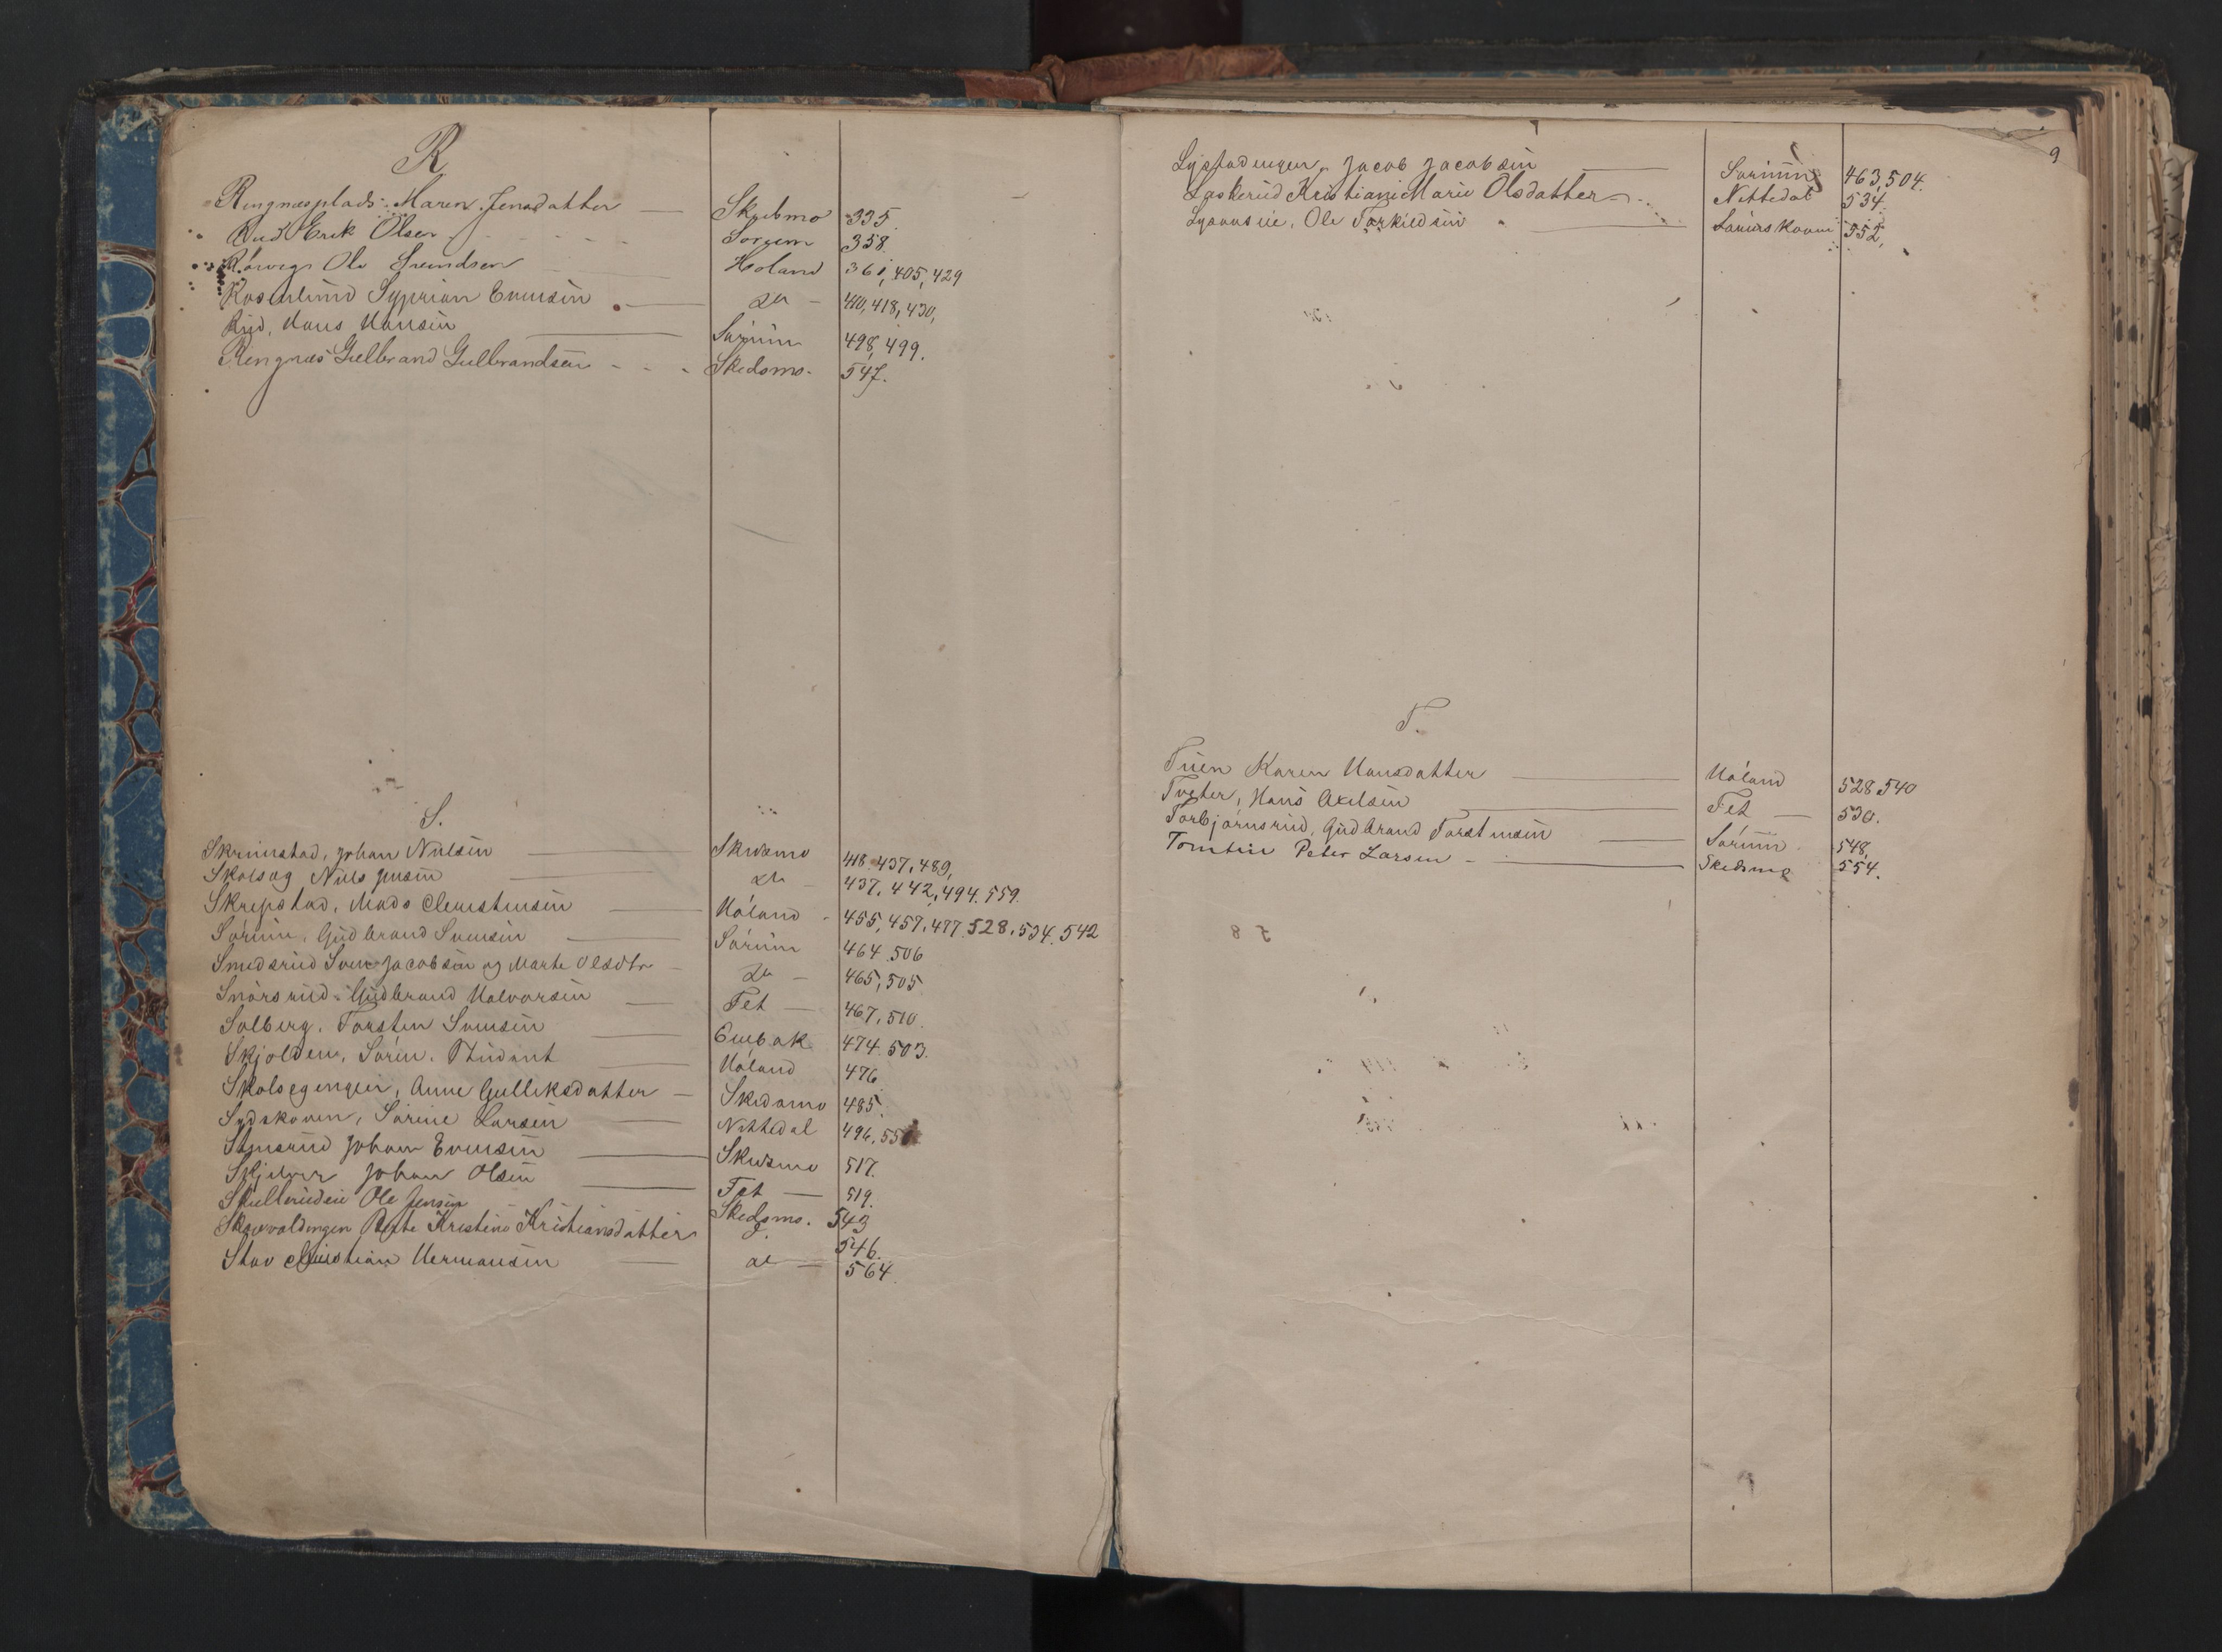 R
Ringnæsplads. Maren Jensdatter Skedsmo 335.
Rud Erik Olsen Sorum 358.
Rårvegn Ole Svendsen Høland 361, 405, 429
Rosenlund Syprian Evensen do 410, 418, 430,
Rud, Hans Hansen Sørum 498, 499.
Ringnæs Gulbrand Gulbrandsen Skedsmo. 547.
S.
Skrimstad, Johan Nielsen Skedsmo 418 437, 489,
Skolseg Niels Jensen do 437, 442, 494. 559.
Skrepstad, Mads Clemetsensen Høland 455, 457, 477. 528, 534. 542
Sørum, Gudbrand Svensen Sørum 464. 506
Smedsrud Sven Jacobsen og Marte Olsdtr do 465, 505
Snørsrud. Gudbrand Halvorsen Fet 467, 510.
Solberg, Torsten Svensen Enebak 474. 503.
Skjolden, Søren. Student Høland 476
Skolsegengen, Anne Gulliksdatter Skedsmo 485.
Sydskoven, Sørine Larsen Nittedal 496, 55
Stensrud Johan Evensen Skedsmo 517.
Johan Olsen Fet 519.
Skullerudeie Ole Jensen Skedsmo. 543
Berte Kristine Kristiansdatter 546.
Stav Christian Hermansen do 564.
9
Jacob Jacobsen Sørum 463, 504.
Kristiane Marie Olsdatter Nittedal 534.
Ole Torkildsen 552,
T.
Tuen Karen Hansdatter Høland 528 540
Tveter, Hans Axelsen Fet 530.
Torbjørnsrud, Gudbrand Torstensen Sørum 548,
Tomten Peter Larsen Skedsmo 554.